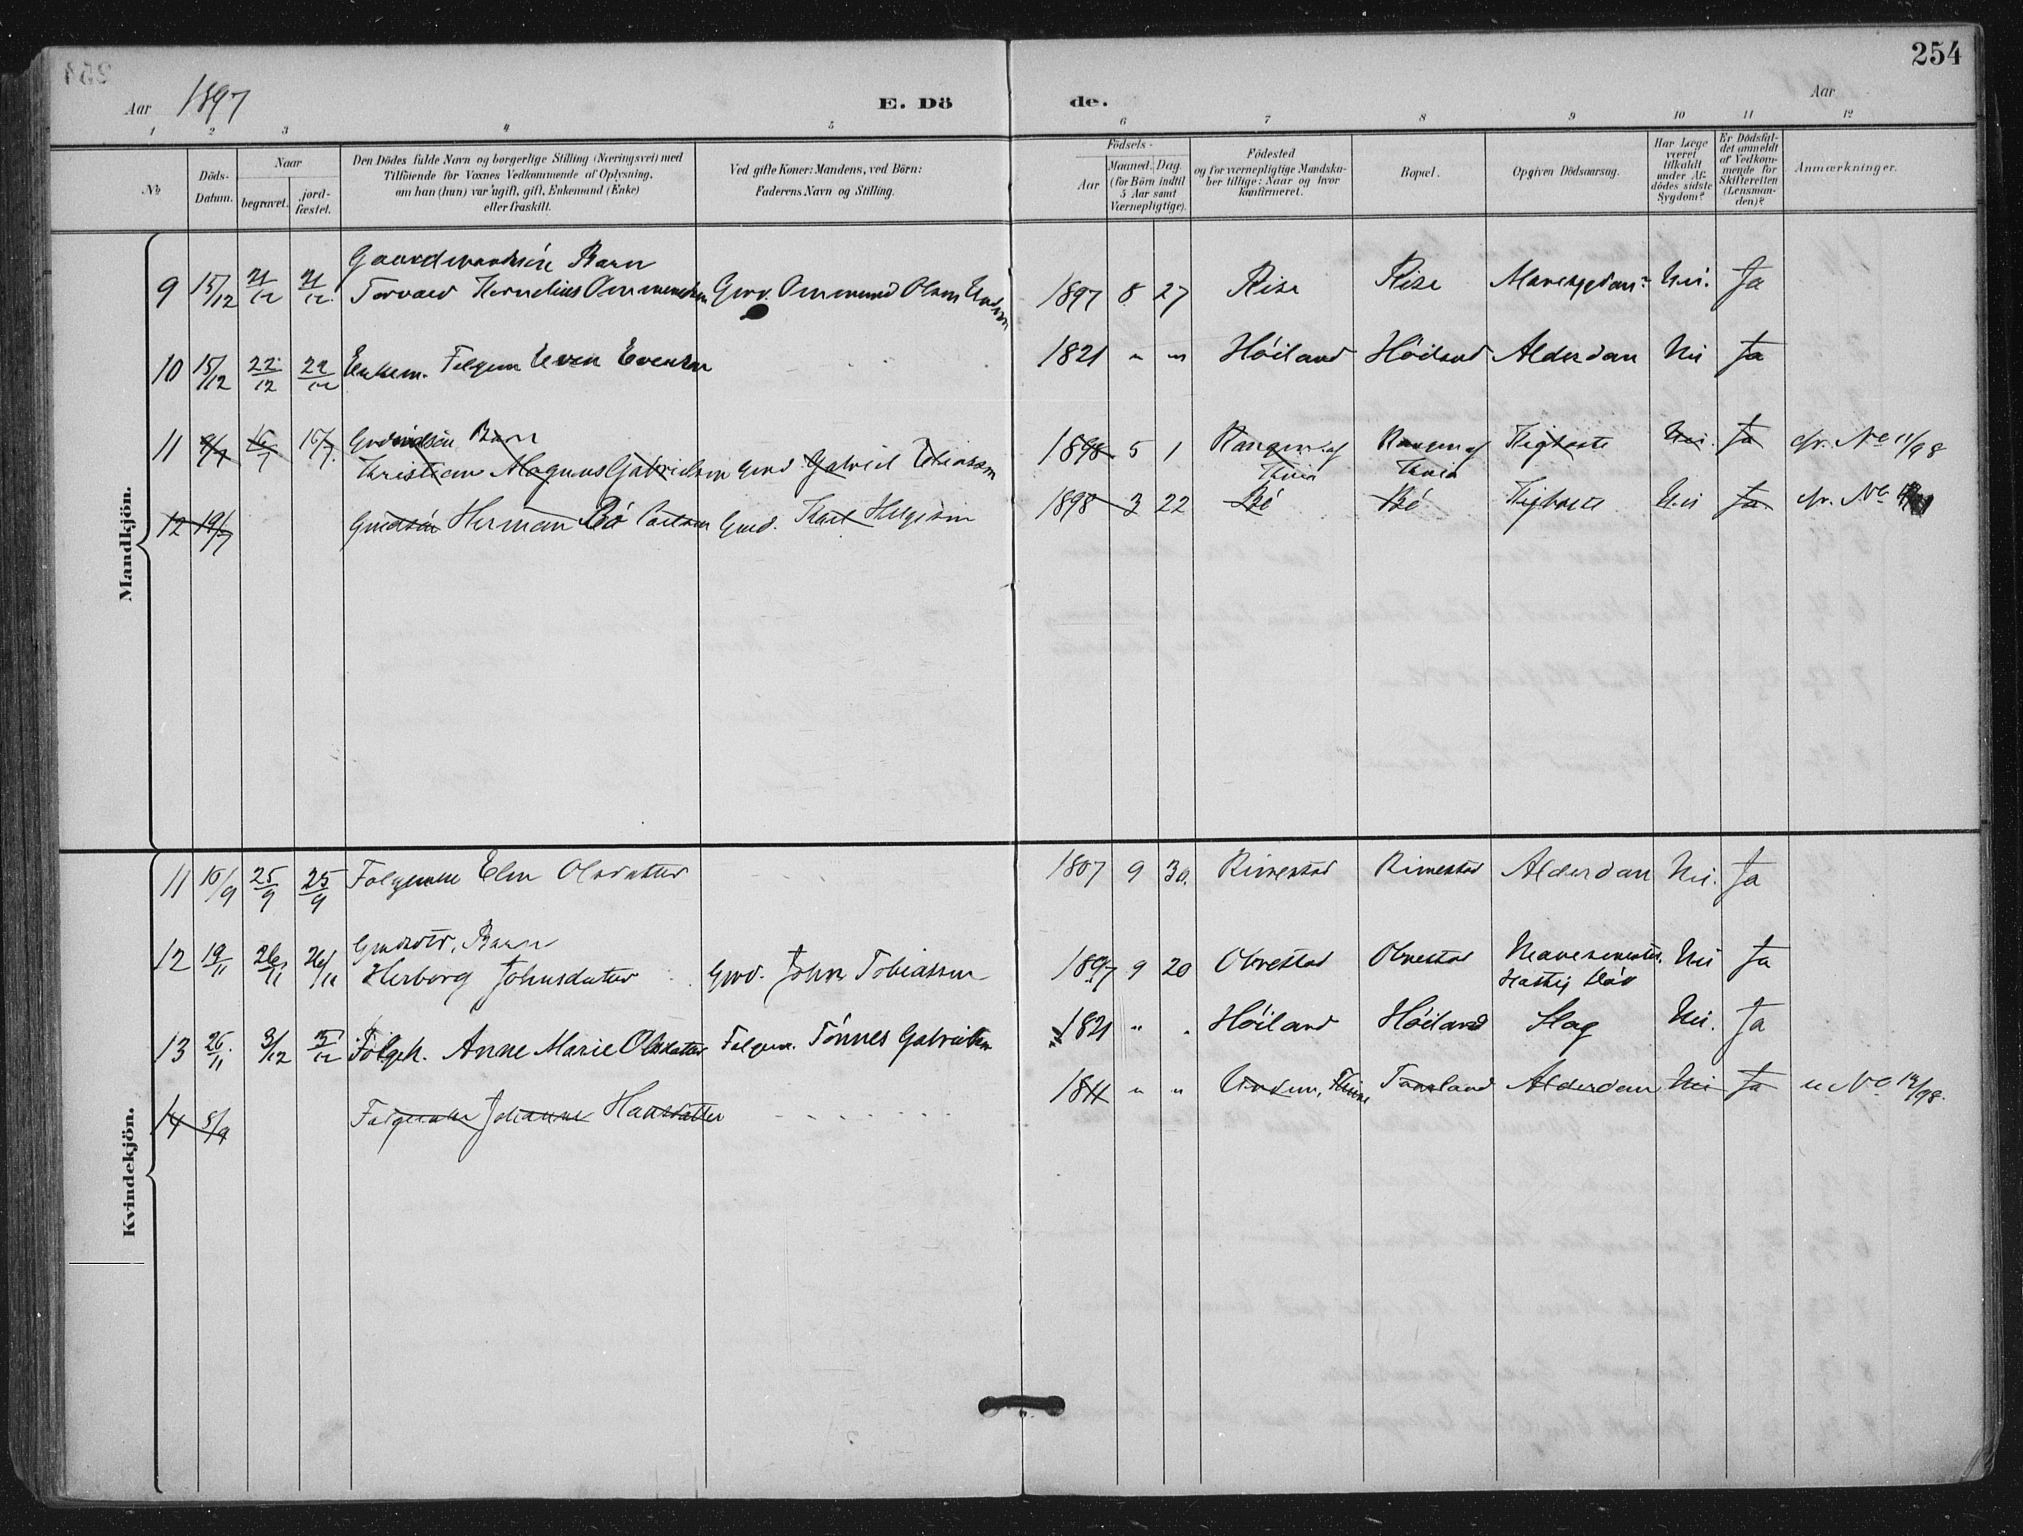 254
Aar 1897
E. Döde.
Aar
1 2 3 4 5 6 7 8 9 10 11 12
No
Döds-Datum.
Naar
begravet.
jordfæstet.
Den Dödes fulde Navn og borgerlige Stilling (Næringsvei) med
Tilföiende for Voxnes Vedkommende af Oplysning,
om han (hun) var ugift, gift, Enkemand (Enke)
eller fraskilt.
Ved gifte Koner: Mandens, ved Börn:
Faderens Navn og Stilling.
Födsels-
Aar
Maaned. Dag.
(for Börn indtil
5 Aar samt
Værnepligtige).
Födested
og for værnepligtige Mandska-
ber tillige: Naar og hvor
konfirmeret.
Bopæl.
Opgiven Dödsaarsag.
Har Læge
været
tilkaldt
under Af-
dödes sidste
Sygdom?
Er Dödsfal-
det anmeldt
af Vedkom-
mende for
Skifteretten
(Lensman-
den)?
Anmærkninger.
Mandkjön.
Gaardmandsön Barn
9 15/12 21/12 21/12 Torvald Kornelius Ommundsen Gmd. Ommund Olsen 1897 8 27 Rise Rise Nei. Ja
10 15/12 22/12 22/12 Enkem. Folgem Even Evensen 1821 " " Höiland Höiland Alderdom Nei Ja
11 9/7 16/7 16/7 Barn
Kristian Magnus Gabrielsen Gmd Gabriel Tobiassen 1898 5 1 Kighoste Nei. Ja cfr. No 11/98
12 19/7 Gmdsön Herman Bö Carlsen Gmd. Karl Helgesen 1898 3 22 Bö Bö Kighoste Nei Ja cfr. No
Kvindekjön.
11 10/9 25/9 25/9 Folgemke Elen Olsdatter 1807 9 30. Rimestad Rimestad Alderdom Nei. Ja
Gmdsdtr, Barn
12 19/11 26/11 26/11 Herborg Johnsdatter Gmd. John Tobiassen 1897 9 20 Obrestad Obrestad Nei Ja
Hastig Död
13 26/11 3/12 3/12 Folgek. Anne Marie Olsdatter Folgem. Tönnes Gabrielsen 1821 " " Höiland Höiland Slag Nei. Ja
14 5/9 Folgeenke Johanne Hansdatter 1811 " " Taarland Alderdom Nei Ja No 14/98.